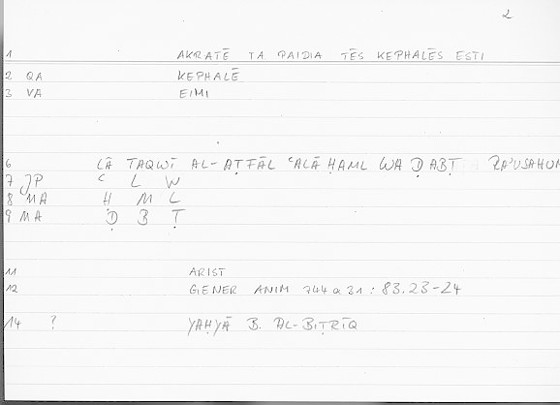 2
1 AKRATĒ TA PAIDIA TĒS KEPHALĒS ESTI
2 QA KEPHALĒ
3 VA EIMI
6 LĀ TAQWĪ AL-AṬFĀL ʿALĀ ḤAML WA ḌABṬ
7 JP ʿ L W
8 MA Ḥ M L
9 MA Ḍ B Ṭ
11 ARIST
12 GENER ANIM 744 a 31 : 83.23-24
14 ? YAḤYĀ B. AL-BIṬRĪQ